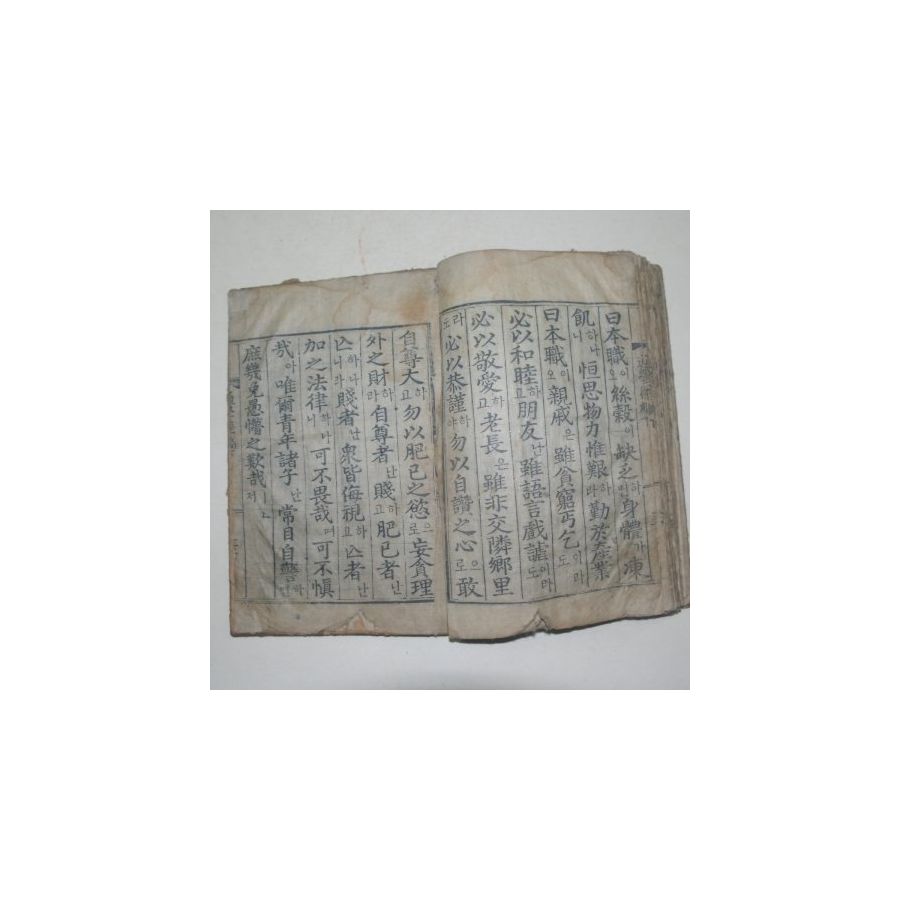 日本職이오 絲穀이 缺乏며하 身體가 凍
飢하나니 恒思物力惟艱하라 勤於產業
日本職이오 親戚은 雖貧窮丐乞이라도
必以和睦하고 朋友난 雖語言戱謔이라도
必以敬愛하고 老長은 雖非交隣鄉里
라도 必以恭謹하야 勿以自讚之心으로 敢
自尊大하고 勿以肥己之慾으로 妄貪理
外之財하라 自尊者난 賤하고 肥己者난
亡하나니라 賤者난 衆皆侮視하고 亡者난
加之法律하나니 可不畏哉며 可不愼
哉아 唯爾靑年諸子난 常目自警하
庶幾免愚懵之歎哉져